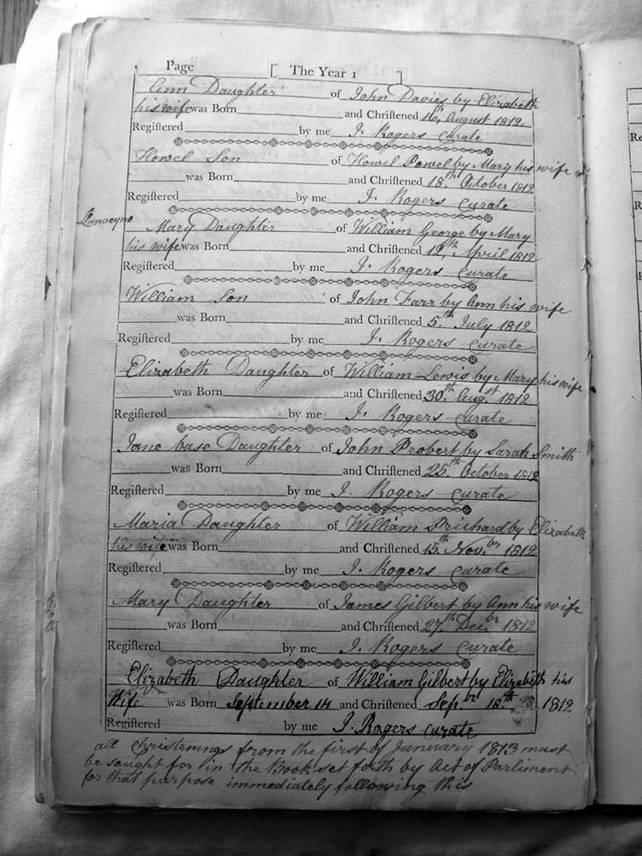 Page [ The Year 1 ]
Ann Daughter of John Davies by Elizabeth
his wife was Born and Chriſtened 16th August 1812
Regiſtered by me J. Rogers Curate
Howel Son of Howel Powel by Mary his wife
was Born and Chriſtened 18th October 1812
Regiſtered by me J. Rogers Curate
Mary Daughter of William George by Mary
his wife was Born and Chriſtened 19th April 1812
Regiſtered by me J. Rogers Curate
William Son of John Farr by Ann his wife
was Born and Chriſtened 5th July 1812
Regiſtered by me J. Rogers Curate
Elizabeth Daughter of William Lewis by Mary his wife
was Born and Chriſtened 30th Augst 1812
Regiſtered by me J. Rogers Curate
Jane base Daughter of John Probert by Sarah Smith
was Born and Chriſtened 25th October 1812
Regiſtered by me J. Rogers Curate
Maria Daughter of William Prichard by Elizabeth
his wife was Born and Chriſtened 15th Novbr 1812
Regiſtered by me J. Rogers Curate
Mary Daughter of James Gilbert by Ann his wife
was Born and Chriſtened 27th Decbr 1812
Regiſtered by me J. Rogers Curate
Elizabeth Daughter of William Gilbert by Elizabeth his
Wife was Born September 14 and Chriſtened Sepbr 18th 1812
Regiſtered by me J. Rogers Curate
all Christenings from the first of January 1813 must
be sought for in the Book set forth by Act of Parliment
for that purpose immediately following this